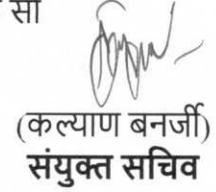 सा
(कल्याण बनर्जी)
संयुक्त सचिव